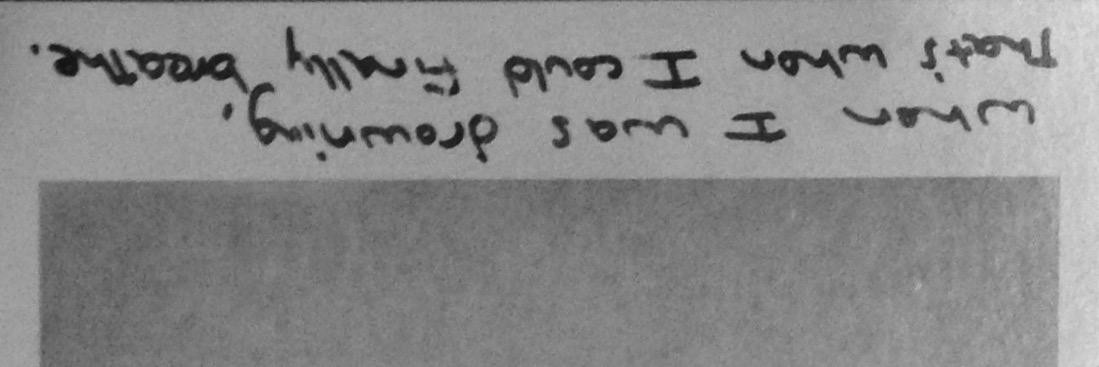 when I was drowning,
That's when I could finally breathe.